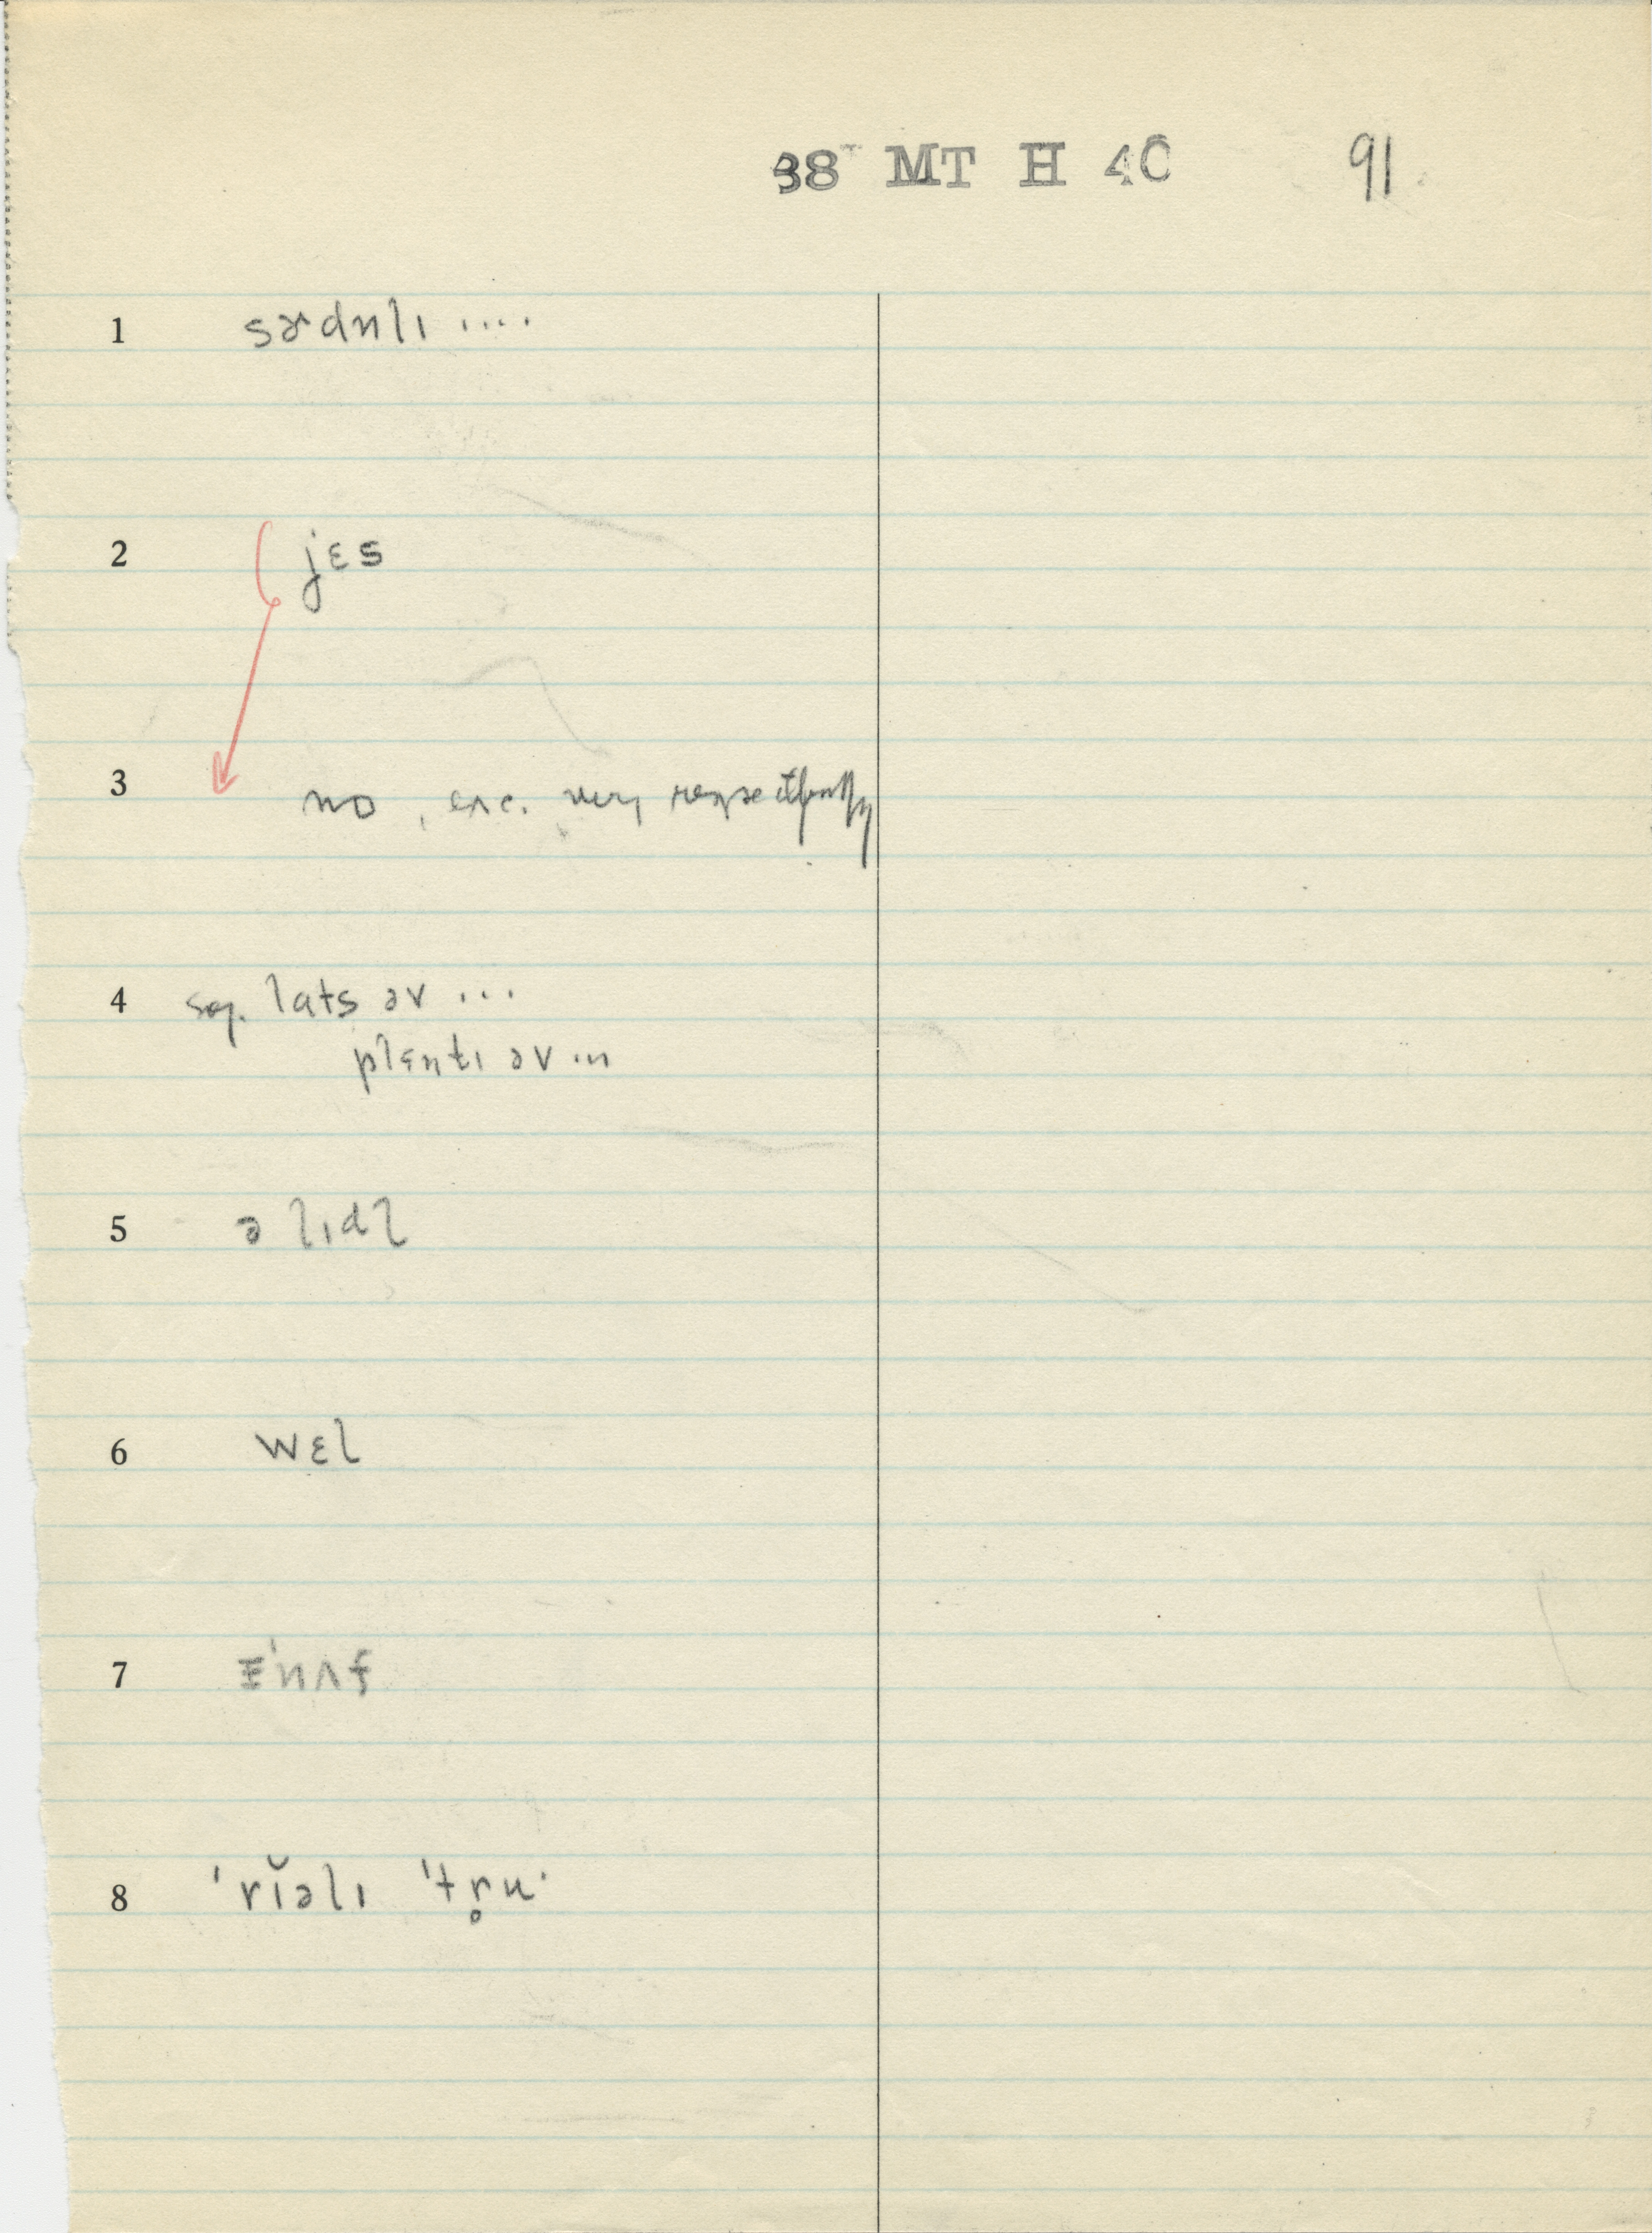 38 MT H 40 91
1 sɚdnlɪ ....
2 jɛs
3 no, exc. very respectfully
4 sog. lats əv ...
plɛntɪ əv ...
5 ə lɪdl
6 wɛl
7 ɪ'nʌf
8 'rĭəlɪ 'tr̥u·